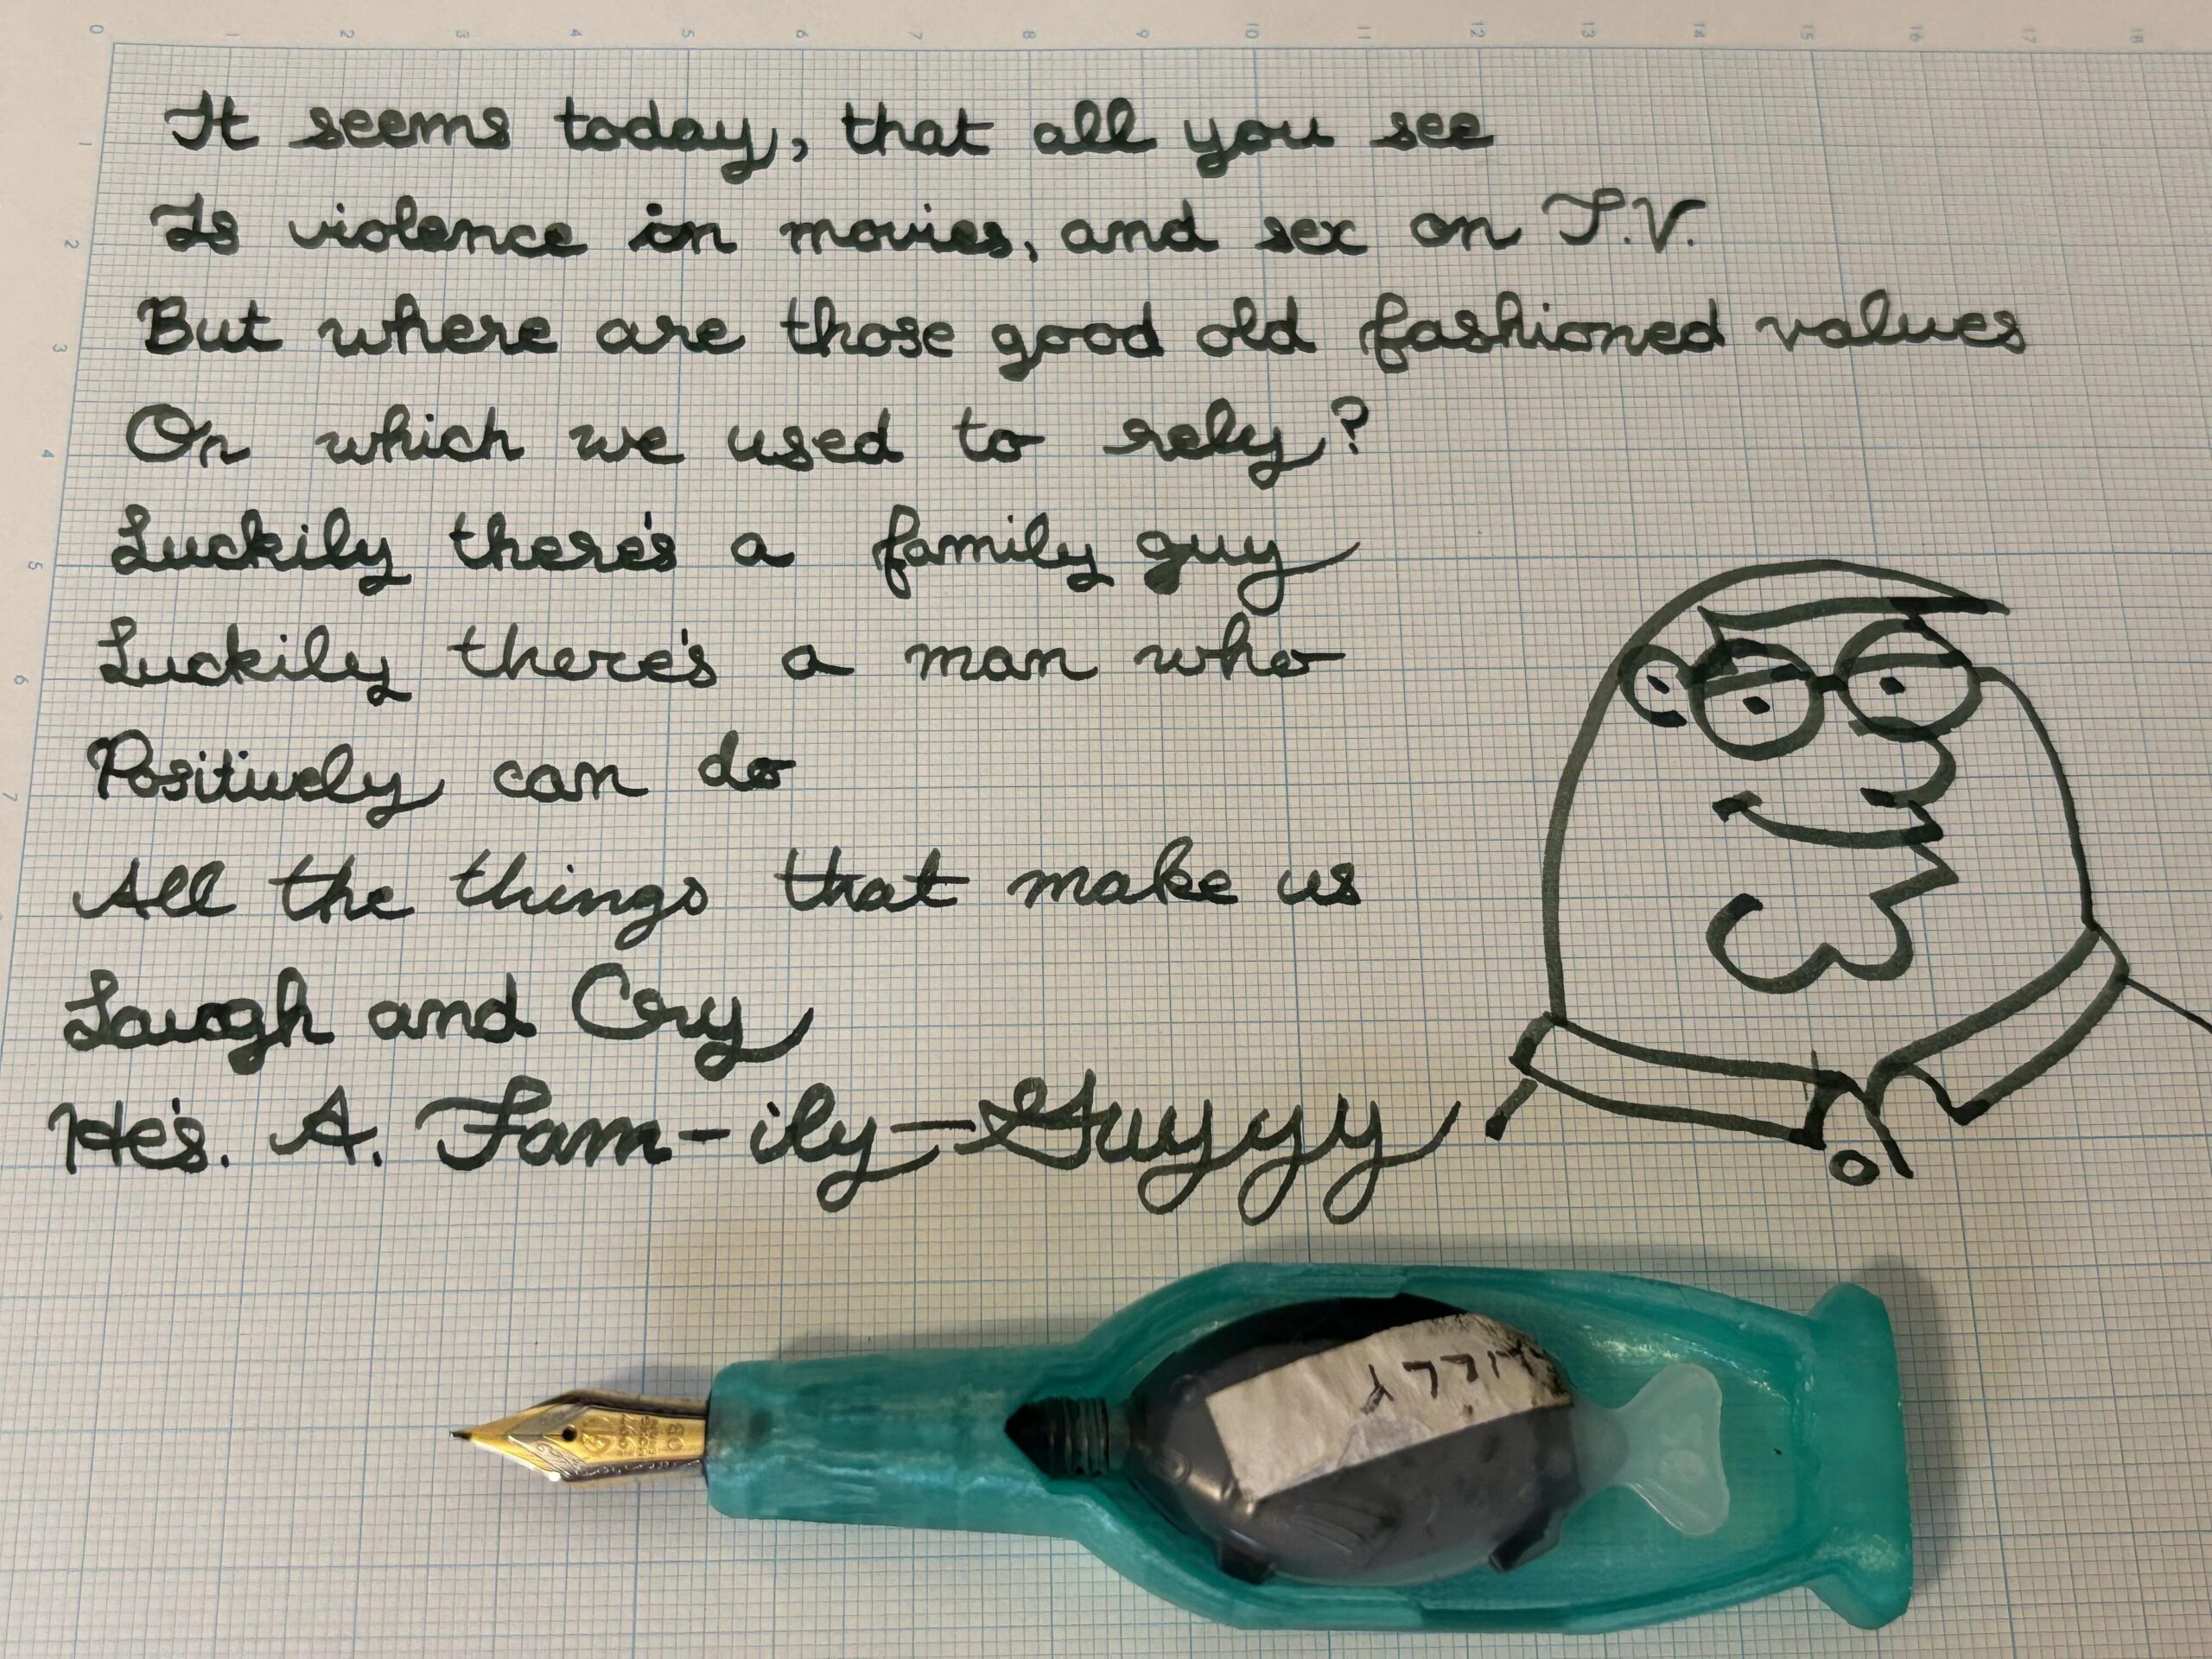 0 1 2 3 4 5 6 7 8 9 10 11 12 13 14 15 16 17 18
1
2
3
4
5
6
7
It seems today, that all you see
Is violence in movies, and sex on T.V.
But where are those good old fashioned values
On which we used to rely?
Luckily there's a family guy
Luckily there's a man who
Positively can do
All the things that make us
Laugh and Cry
He's. A. Fam-ily-Guyyy
OB